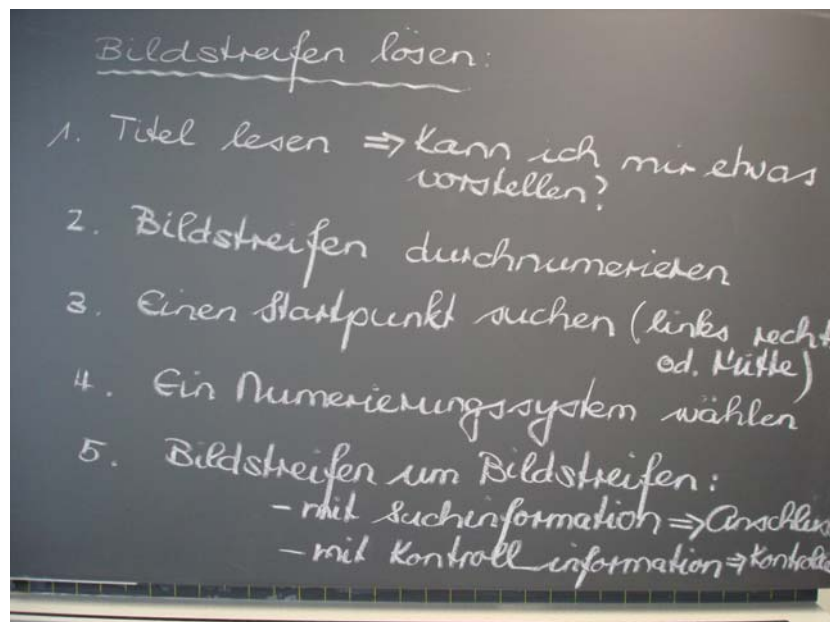 Bildstreifen lösen:
1. Titel lesen ⇒ Kann ich mir etwas
vorstellen?
2. Bildstreifen durchnumerieren
3. Einen Startpunkt suchen (links recht
od. Mitte)
4. Ein Numerierungssystem wählen
5. Bildstreifen um Bildstreifen:
- mit Suchinformation ⇒ Anschluss
- mit Kontrollinformation ⇒ Kontrolle